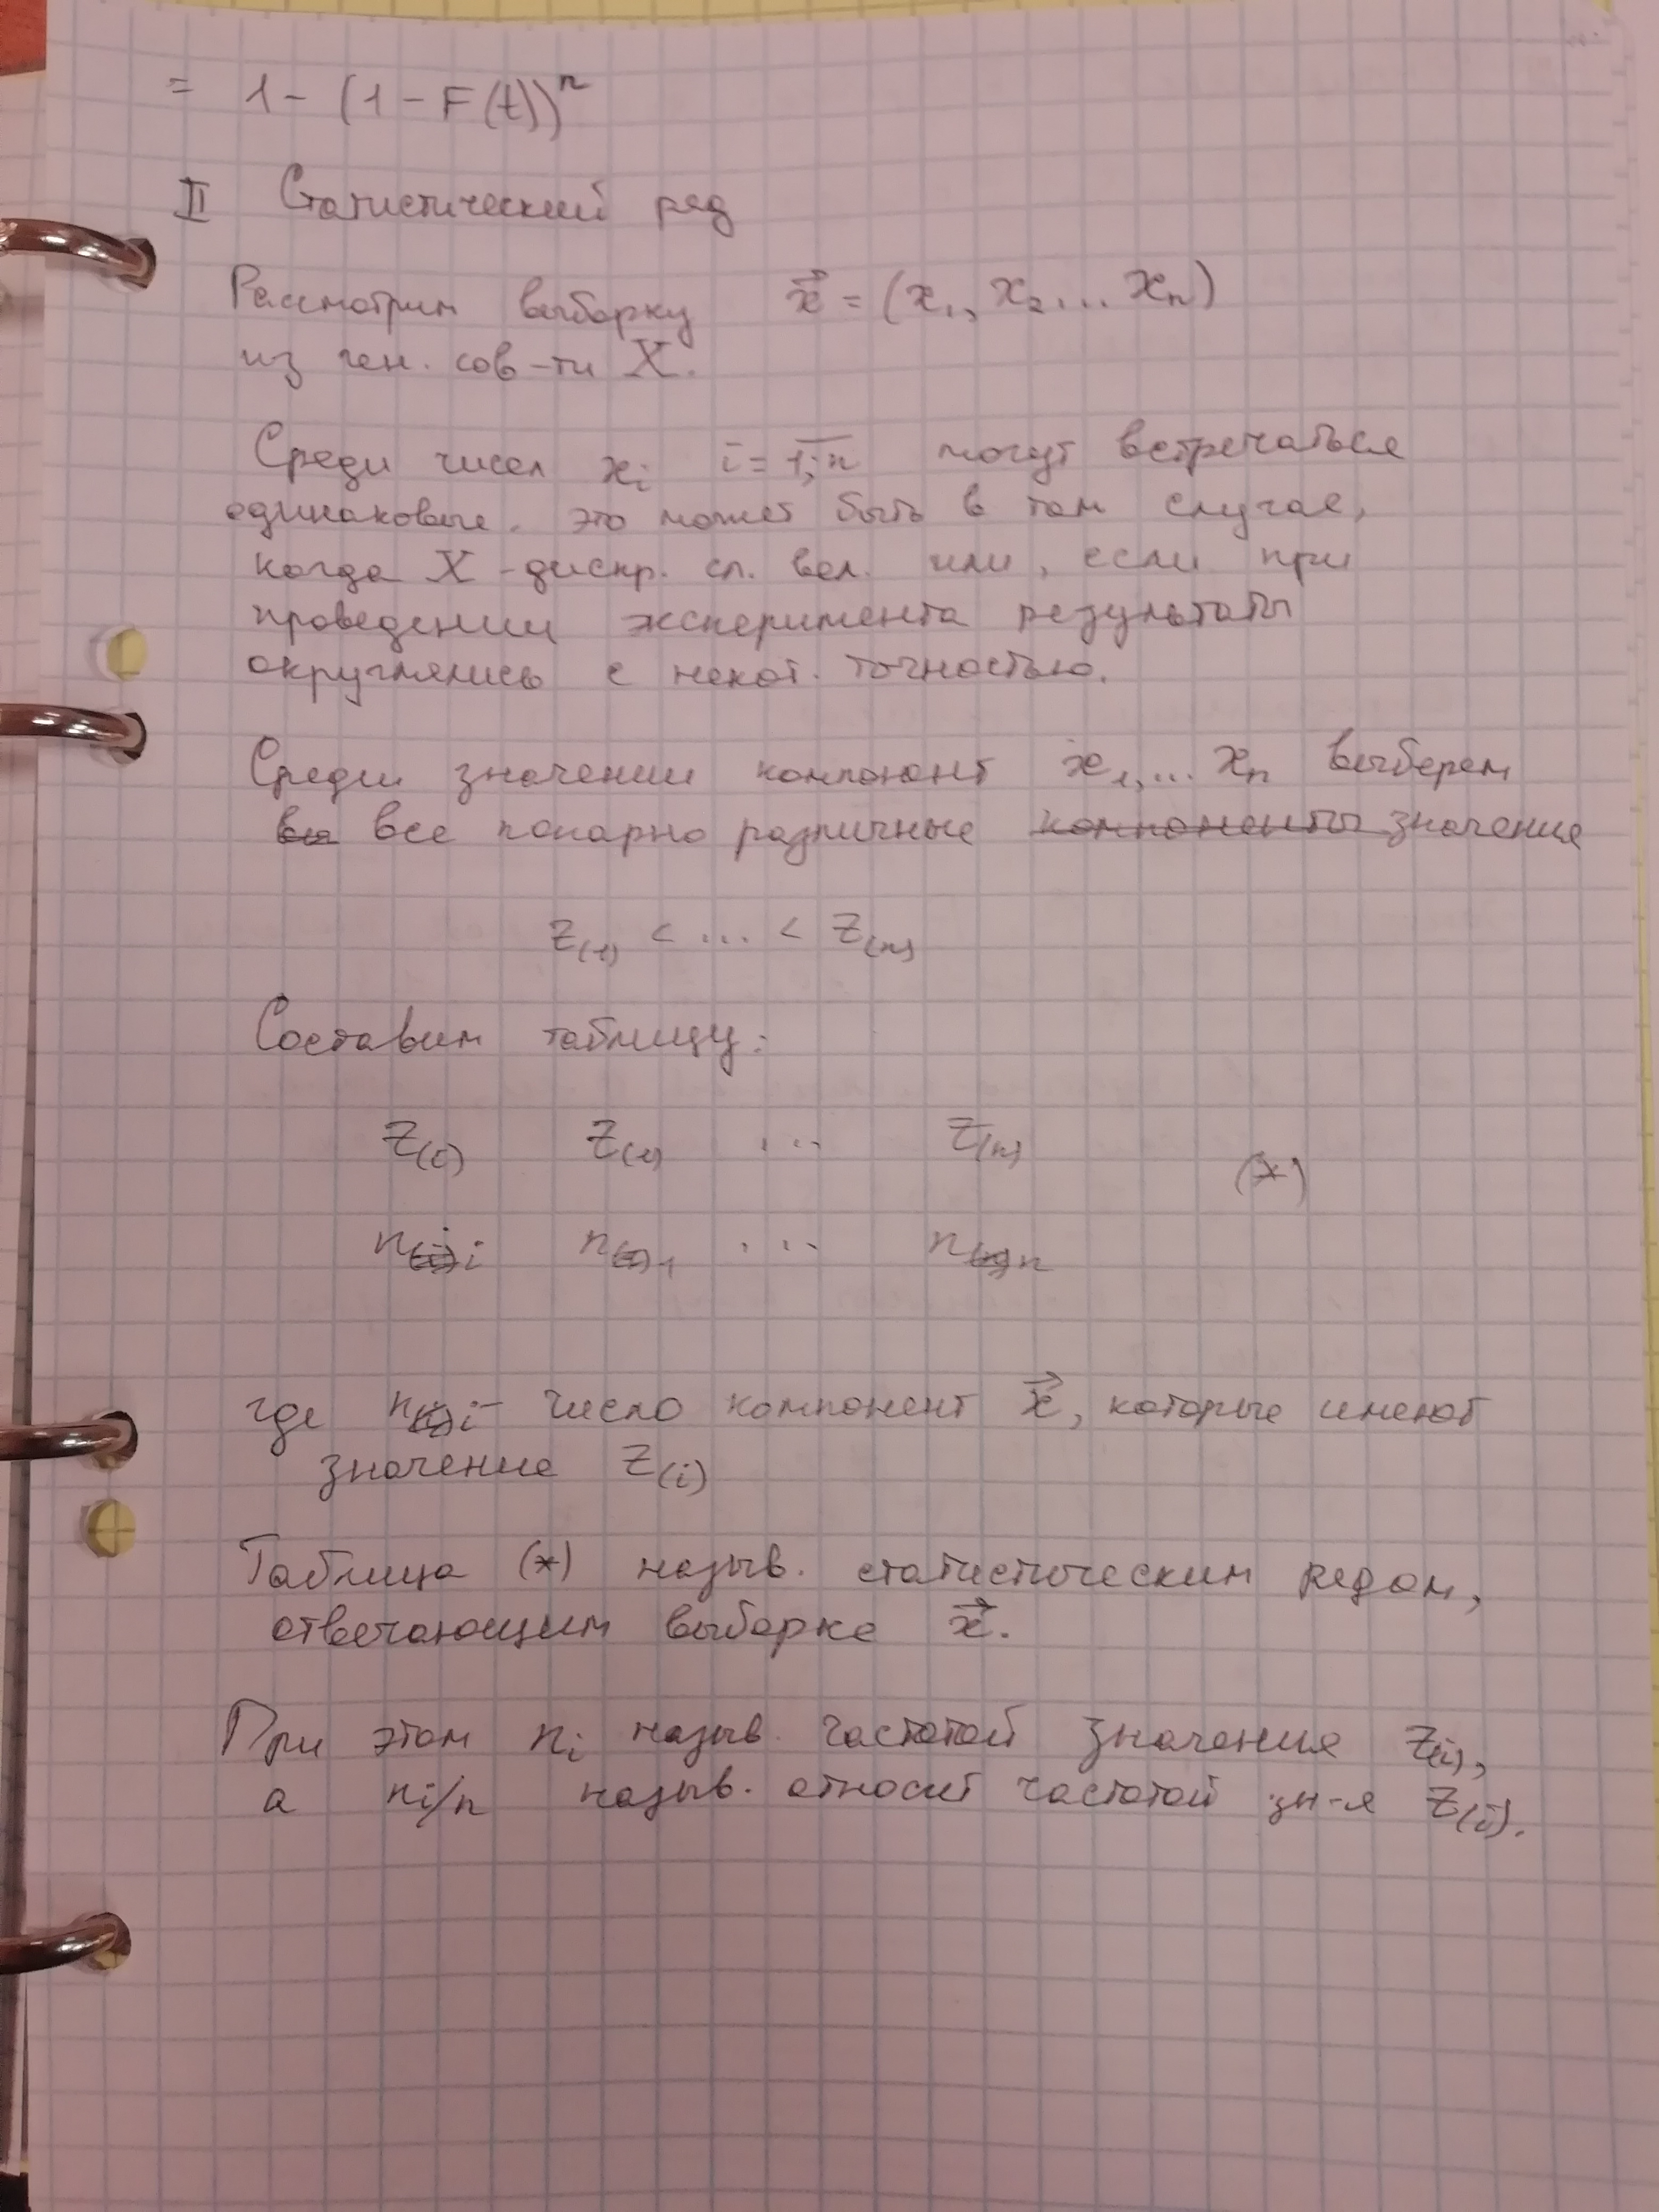 = 1 - (1 - F(t))ⁿ
II Статистический ряд
Рассмотрим выборку x⃗ = (x₁, x₂ ... xₙ)
из ген. сов-ти X.
Среди чисел xᵢ i = 1;n могут встречаться
одинаковые. это может быть в том случае,
когда X - дискр. сл. вел. или, если при
проведении эксперимента результаты
округлялись с некот. точностью.
Среди значений компонент x₁,... xₙ выберем
все попарно различные компоненты значения
Z₍₁₎ < ... < Z₍ₙ₎
Составим таблицу:
Z₍ᵢ₎ Z₍₁₎ ... Z₍ₙ₎ (*)
nᵢ n₁ ... nₙ
где nᵢ - число компонент x⃗, которые имеют
значение Z₍ᵢ₎
Таблица (*) назыв. статистическим рядом,
отвечающим выборке x⃗.
При этом nᵢ назыв. частотой значения Z₍ᵢ₎,
а nᵢ/n назыв. относит частотой зн-я Z₍ᵢ₎.